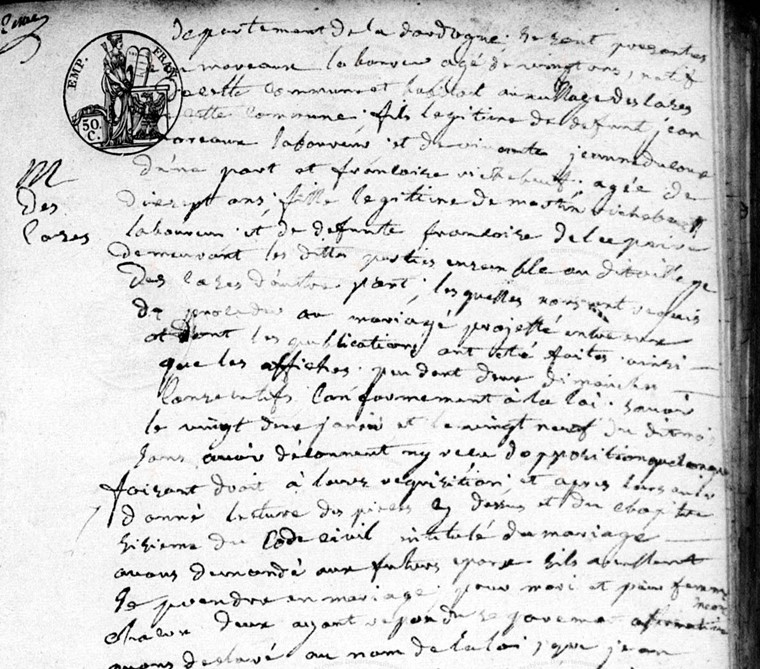 EMP. FRAN
50 C.
Des
Lases
Departement de la dordogne. se sont presentés
moreaux laboureur agé de vingt ans, natif
cette commune et habitant au village des lases
cette commune, fils legitime de defunt jean
moreaux laboureur et de vivante jeanne
d'une part et francoise richebeuf, agée de
dixsept ans, fille legitime de martin richebeuf
laboureur et de defunte francoise
demeurant les dittes parties ensemble au dit village
des lases d'autre part, lesquelles nous ont requis
de proceder au mariage projetté entre eux
et dont les publications ont eté faites ainsi
que les affiches pendant deux dimanches
consecutifs conformement a la loi savoir
le vingt deux janvier et le vingt neuf du dit mois
sans avoir ny recu d'opposition quelconque
faisant droit a leurs requisition, et apres leurs avoir
donné lecture des pieces cy dessus et du chapitre
sixieme du Code civil intitulé du mariage
avons demandé aux futurs epoux s'ils veullent
se prendre en mariage pour mari et pour femme
chacun deux ayant repondu separement affirmativem
avons declaré au nom de la loi, que jean